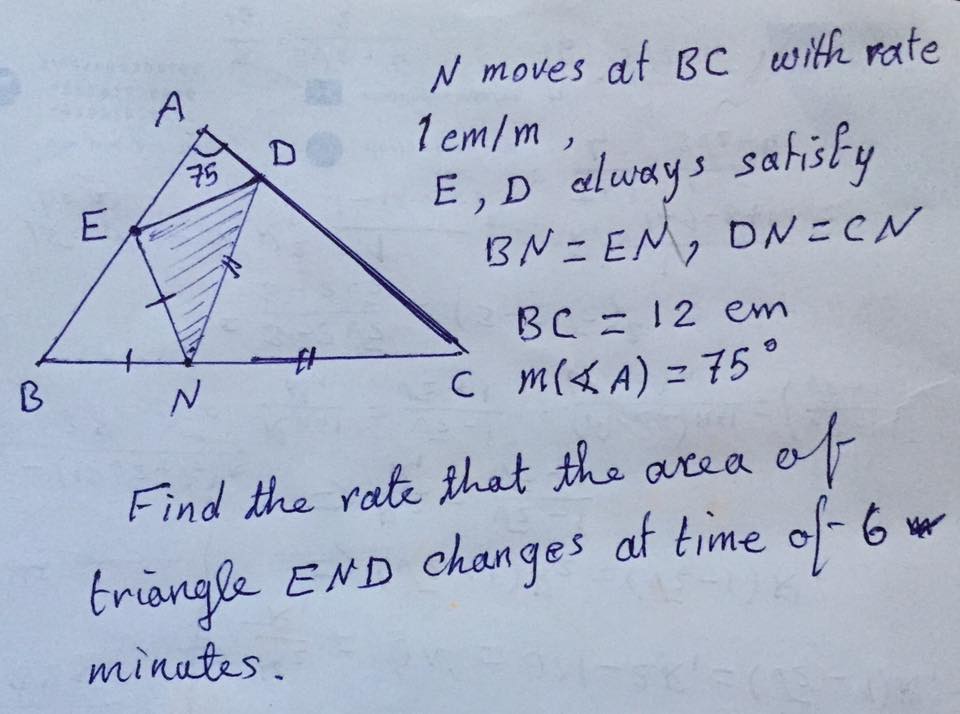 N moves at BC with rate
1 cm/m ,
E , D always satisfy
BN = EN , DN = CN
BC = 12 cm
m(∢A) = 75°
A
D
75
E
B
N
C
Find the rate that the area of
triangle END changes at time of 6
minutes.